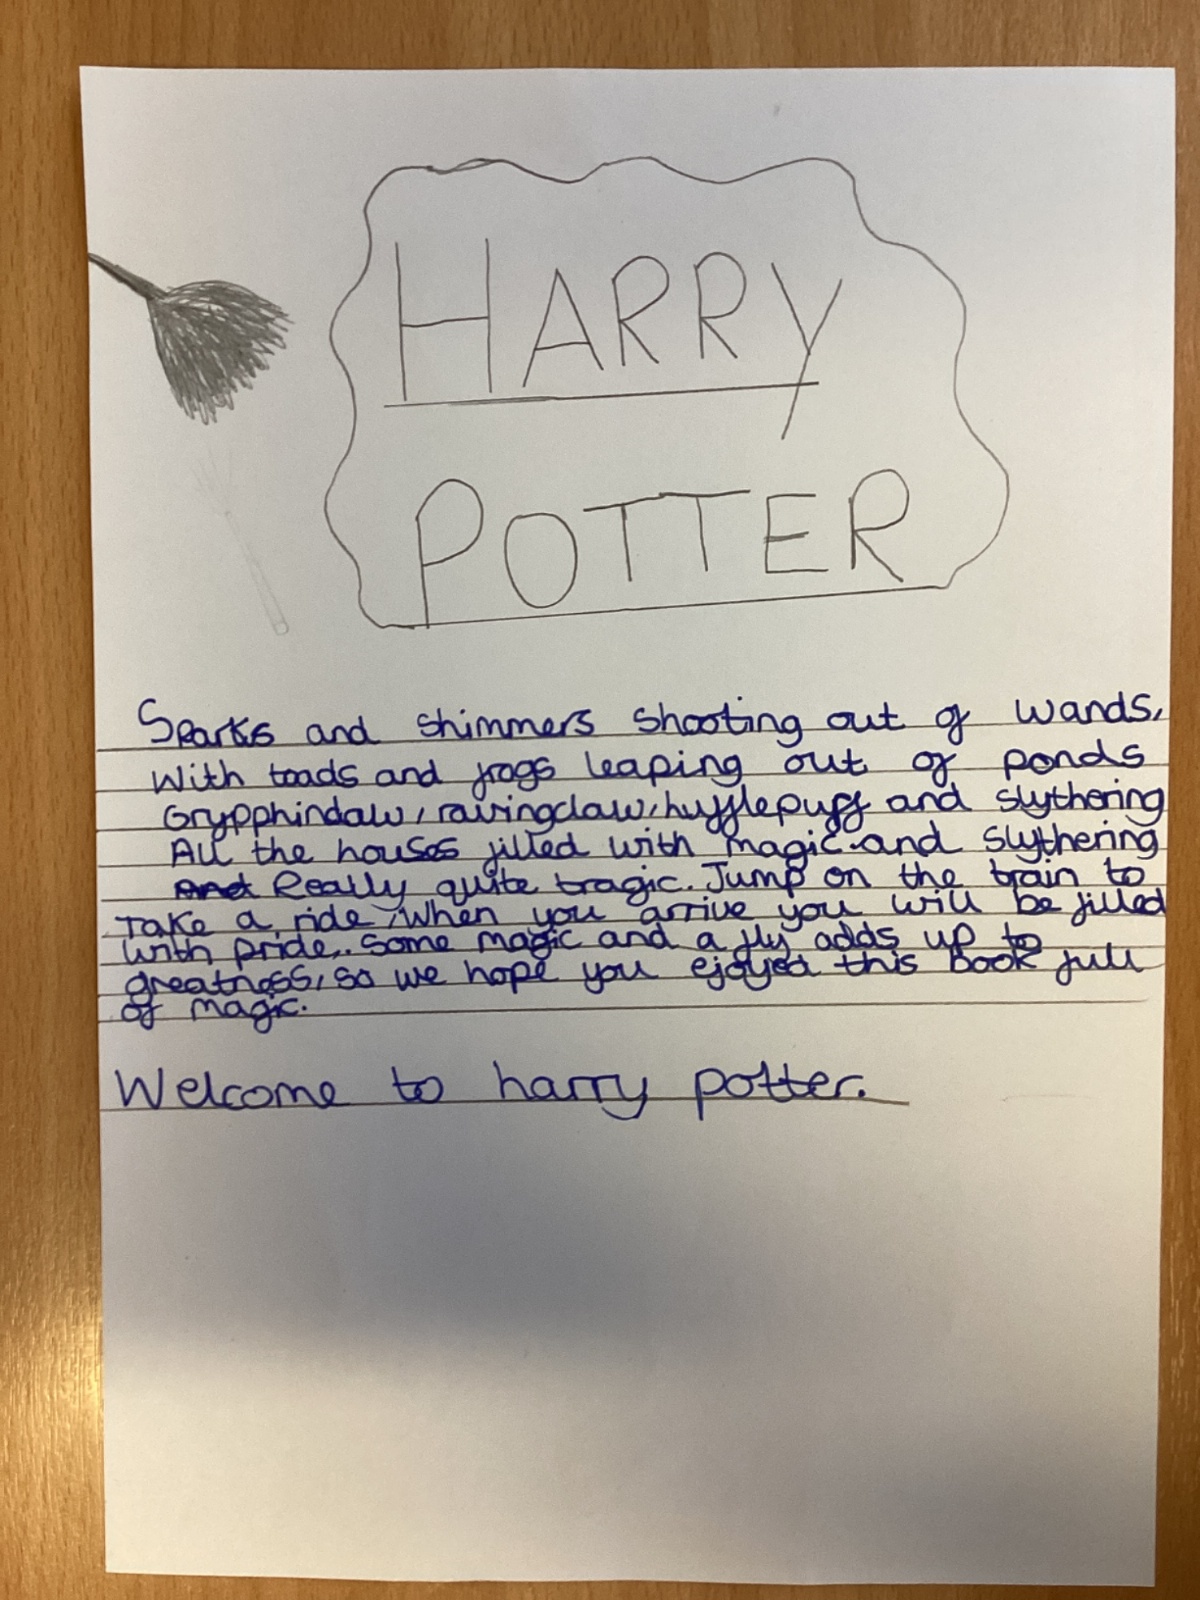 HARRY
POTTER
Sparks and shimmers shooting out of wands,
With toads and frogs leaping out of ponds
Grypphindaw, ravingclaw, hufflepuff and slythering
All the houses filled with magic and slythering
And Really quite tragic. Jump on the train to
Take a ride, When you arrive you will be filled
with pride,. Some magic and a fly adds up to
greatness, so we hope you ejoyed this book full
of magic.
Welcome to harry potter.